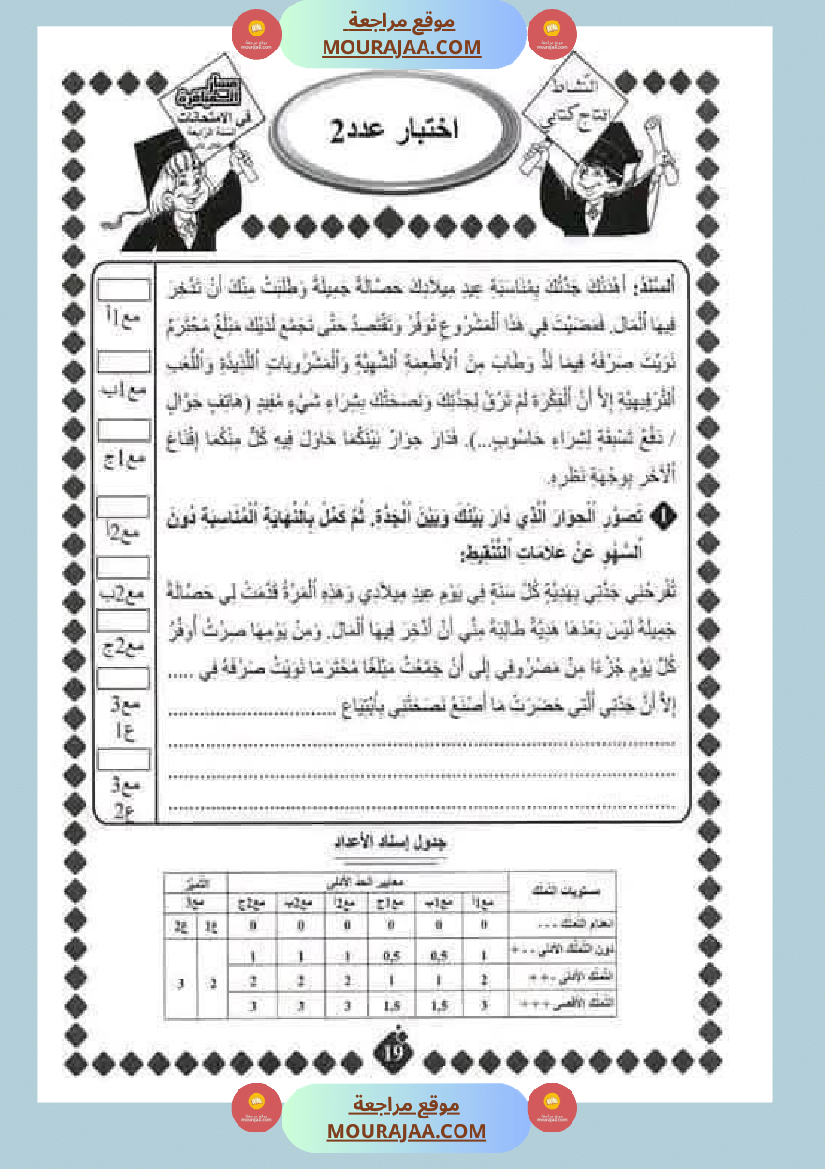 موقع مراجعة
MOURAJAA.COM
النشاط
إنتاج كتابي
اختبار عدد2
في الامتحانات
السنة الرابعة
اَلسَّنَدُ: أَهْدَتْكَ جَدَّتُكَ بِمُنَاسَبَةِ عِيدِ مِيلَادِكَ حَصَّالَةً جَمِيلَةً وَطَلَبَتْ مِنْكَ أَنْ تَدَّخِرَ
فِيهَا اَلْمَالَ. فَمَضَيْتَ فِي هَذَا اَلْمَشْرُوعِ تُوَفِّرُ وَتَقْتَصِدُ حَتَّى تَجَمَّعَ لَدَيْكَ مَبْلَغٌ مُحْتَرَمٌ
نَوَيْتَ صَرْفَهُ فِيمَا لَذَّ وَطَابَ مِنَ اَلْأَطْعِمَةِ اَلشَّهِيَّةِ وَاَلْمَشْرُوبَاتِ اَللَّذِيذَةِ وَاَللُّعَبِ
اَلتَّرْفِيهِيَّةِ إِلاَّ أَنَّ اَلْفِكْرَةَ لَمْ تَرُقْ لِجَدَّتِكَ وَنَصَحَتْكَ بِشِرَاءِ شَيْءٍ مُفِيدٍ (هَاتِفٍ جَوَّالٍ
/ دَفْعُ تَسْبِقَةٍ لِشِرَاءِ حَاسُوبٍ...). فَدَارَ حِوَارٌ بَيْنَكُمَا حَاوَلَ فِيهِ كُلٌّ مِنْكُمَا إِقْنَاعَ
اَلْآخَرِ بِوِجْهَةِ نَظَرِهِ.
1 تَصَوَّرِ اَلْحِوَارَ اَلَّذِي دَارَ بَيْنَكَ وَبَيْنَ اَلْجَدَّةِ. ثُمَّ كَمِّلْ بِالنِّهَايَةِ اَلْمُنَاسَبَةِ دُونَ
اَلسَّهْوِ عَنْ عَلَامَاتِ اَلتَّنْقِيطِ:
تُفْرِحُنِي جَدَّتِي بِهَدِيَّةٍ كُلَّ سَنَةٍ فِي يَوْمِ عِيدِ مِيلَادِي وَهَذِهِ اَلْمَرَّةَ قَدَّمَتْ لِي حَصَّالَةً
جَمِيلَةً لَيْسَ بَعْدَهَا هَدِيَّةٌ طَالِبَةً مِنِّي أَنْ أَدَّخِرَ فِيهَا اَلْمَالَ. وَمِنْ يَوْمِهَا صِرْتُ أُوَفِّرُ
كُلَّ يَوْمٍ جُزْءًا مِنْ مَصْرُوفِي إِلَى أَنْ جَمَّعْتُ مَبْلَغًا مُحْتَرَمًا نَوَيْتُ صَرْفَهُ فِي .....
إِلاَّ أَنَّ جَدَّتِي اَلَّتِي حَضَرَتْ مَا أَصْنَعُ نَصَحَتْنِي بِاِبْتِيَاعِ ..............................
مع1أ
مع1ب
مع1ج
مع2أ
مع2ب
مع2ج
مع3
ع1
مع3
ع2
جدول إسناد الأعداد
مستويات التملك معايير الحد الأدنى التميز
مع1أ مع1ب مع1ج مع2أ مع2ب مع2ج مع3
ع1 ع2
انعدام التملك - - - 0 0 0 0 0 0
دون التملك الأدنى - - + 1 0,5 0,5 1 1 1
التملك الأدنى - + + 2 1 1 2 2 2 2 3
التملك الأقصى + + + 3 1,5 1,5 3 3 3
19
موقع مراجعة
MOURAJAA.COM